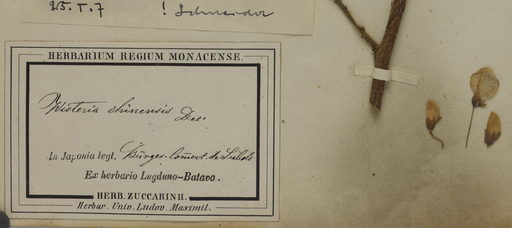 25. I. 7 ! Schneider
HERBARIUM REGIUM MONACENSE.
Wisteria chinensis Dec.
In Japonia legt. Bürger. Comm. de Siebold
Ex herbario Lugduno-Batavo.
HERB. ZUCCARINII.
Herbar. Univ. Ludov. Maximil.